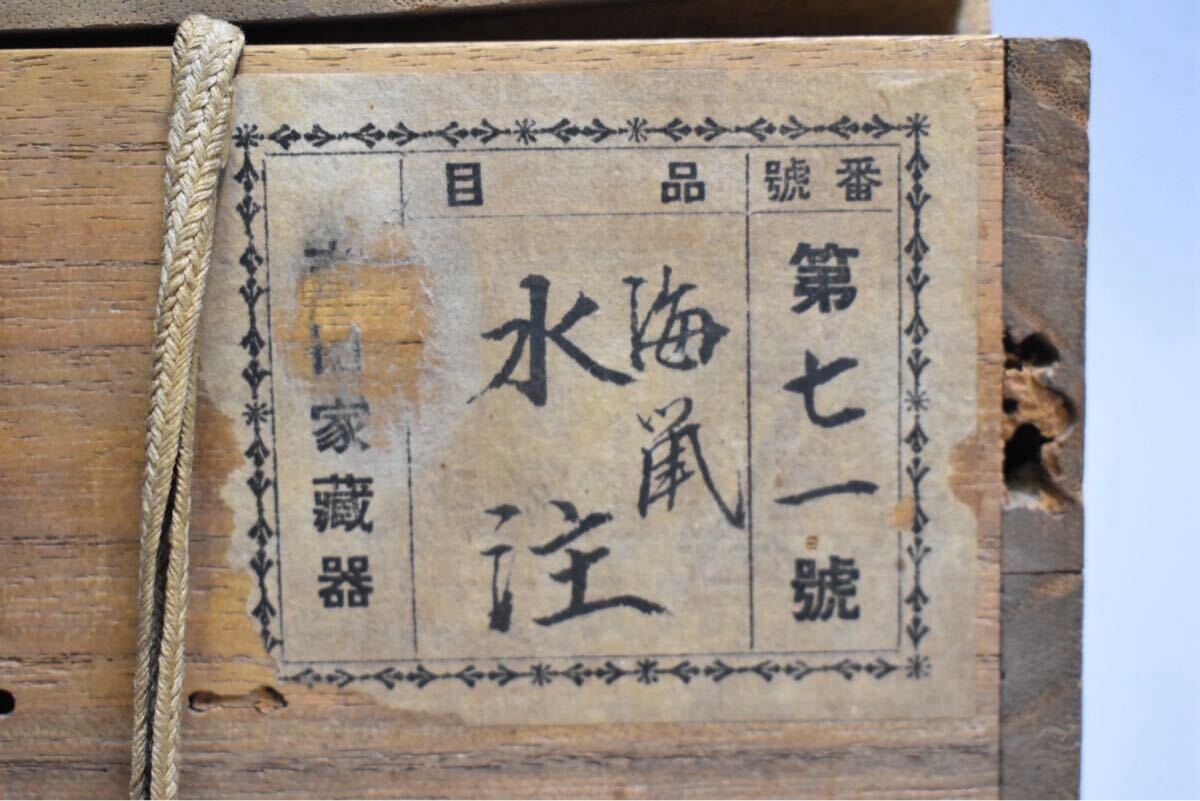 番號
第七一號
品目
海鼡
水注
家藏器